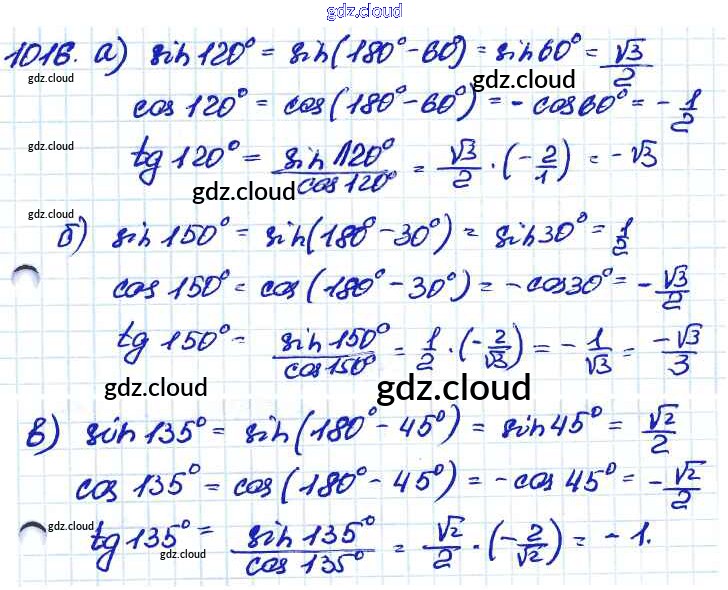 gdz.cloud
1016. а) sin 120° = sin(180° - 60°) = sin 60° = √3/2
gdz.cloud
gdz.cloud
cos 120° = cos(180° - 60°) = - cos 60° = - 1/2
gdz.cloud
tg 120° = sin 120°/cos 120° = √3/2 · (- 2/1) = - √3
gdz.cloud
gdz.cloud
б) sin 150° = sin(180° - 30°) = sin 30° = 1/2
cos 150° = cos(180° - 30°) = - cos 30° = - √3/2
tg 150° = sin 150°/cos 150° = 1/2 · (- 2/√3) = - 1/√3 = -√3/3
gdz.cloud
gdz.cloud
в) sin 135° = sin(180° - 45°) = sin 45° = √2/2
cos 135° = cos(180° - 45°) = - cos 45° = - √2/2
gdz.cloud
tg 135° = sin 135°/cos 135° = √2/2 · (- 2/√2) = - 1.
gdz.cloud
gdz.cloud